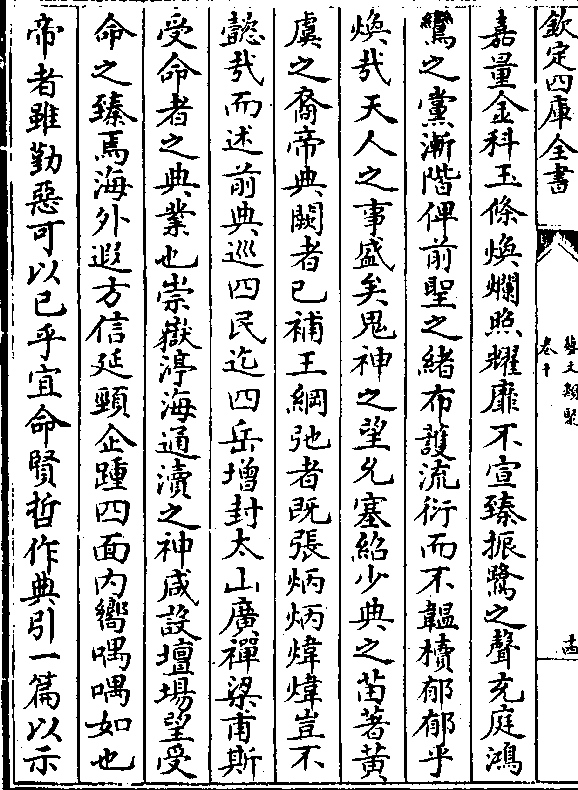 欽定四庫全書
藝文類聚
卷十
十四
嘉量金科玉條煥爛照耀靡不宣臻振鷺之聲充庭鴻
鸞之黨漸階俾前聖之緒布護流衍而不韞櫝郁郁乎
煥哉天人之事盛矣鬼神之望允塞紹少典之苗著黃
虞之裔帝典闕者已補王綱弛者既張炳炳煒煒豈不
懿哉而述前典巡四民迄四岳增封太山廣禪梁甫斯
受命者之典業也崇嶽渟海通瀆之神咸設壇場望受
命之臻焉海外遐方信延頸企踵四面内嚮喁喁如也
帝者雖勤惡可以已乎宜命賢哲作典引一篇以示